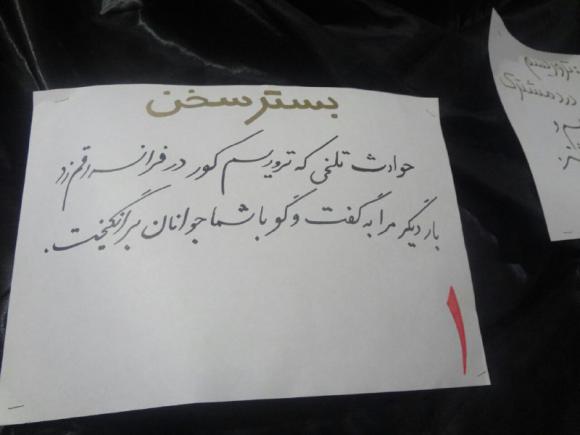 بستر سخن
حوادث تلخی که تروریسم کور در فرانسه رقم زد
بار دیگر مرا به گفت و گو با شما جوانان برانگیخت.
۱
تروریسم
درد مشتری